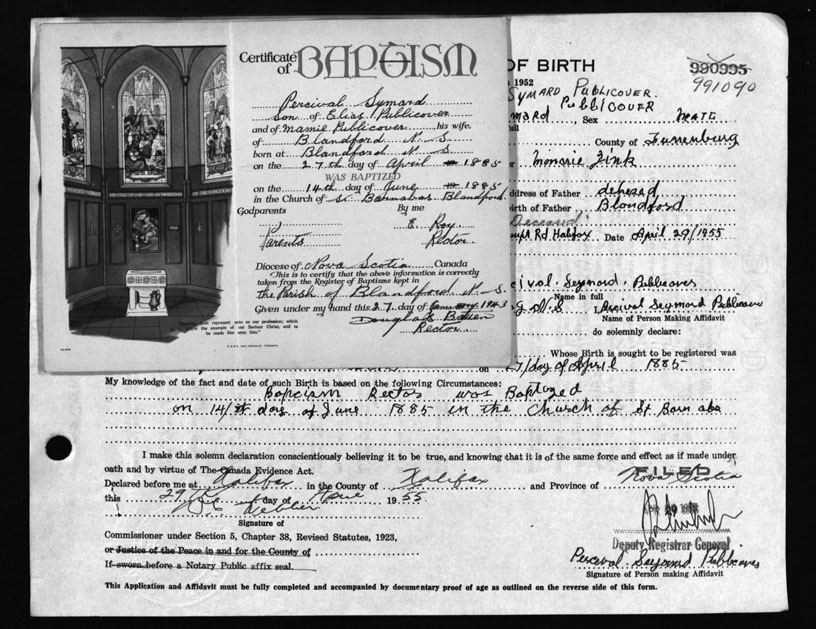 Certificate of BAPTISM
Percival Symard
Son of Elias Publicover
and of Mamie Publicover his wife.
of Blandford N. S.
born at Blandford N. S.
on the 27th day of April 1885
WAS BAPTIZED
on the 14th day of June 1885
in the Church of St Barnabas Blandford
Godparents By me
E. Roy
Parents Rector
Diocese of Nova Scotia Canada
This is to certify that the above information is correctly
taken from the Register of Baptisms kept in
the Parish of Blandford N. S.
Given under my hand this 27 day of 1943
Douglas
Rector
represent unto us our profession; which
the example of our Saviour Christ, and to
be made like unto him."
OF BIRTH
990995
991090
1952
Symard Publicover.
Publicover
Sex Male
County of Lunenburg
Zink
ddress of Father
irth of Father Blandford
Deceased
Rd Halifax Date April 29/1955
Name in full
I, Percival Seymord Publicover
Name of Person Making Affidavit
do solemnly declare:
Whose Birth is sought to be registered was
on 27/day of April 1885
My knowledge of the fact and date of such Birth is based on the following Circumstances:
was Baptozed
on 14/ day of June 1885 in the Church of St Barn aba
I make this solemn declaration conscientiously believing it to be true, and knowing that it is of the same force and effect as if made under
oath and by virtue of The Canada Evidence Act.
FILED
Declared before me at Halifax in the County of Halifax and Province of Nova Scotia
this 29th day of April 1955
Signature of
Commissioner under Section 5, Chapter 38, Revised Statutes, 1923,
or Justice of the Peace in and for the County of
If sworn before a Notary Public affix seal.
Deputy Registrar General
Percival Seymord Publicover
Signature of Person making Affidavit
This Application and Affidavit must be fully completed and accompanied by documentary proof of age as outlined on the reverse side of this form.